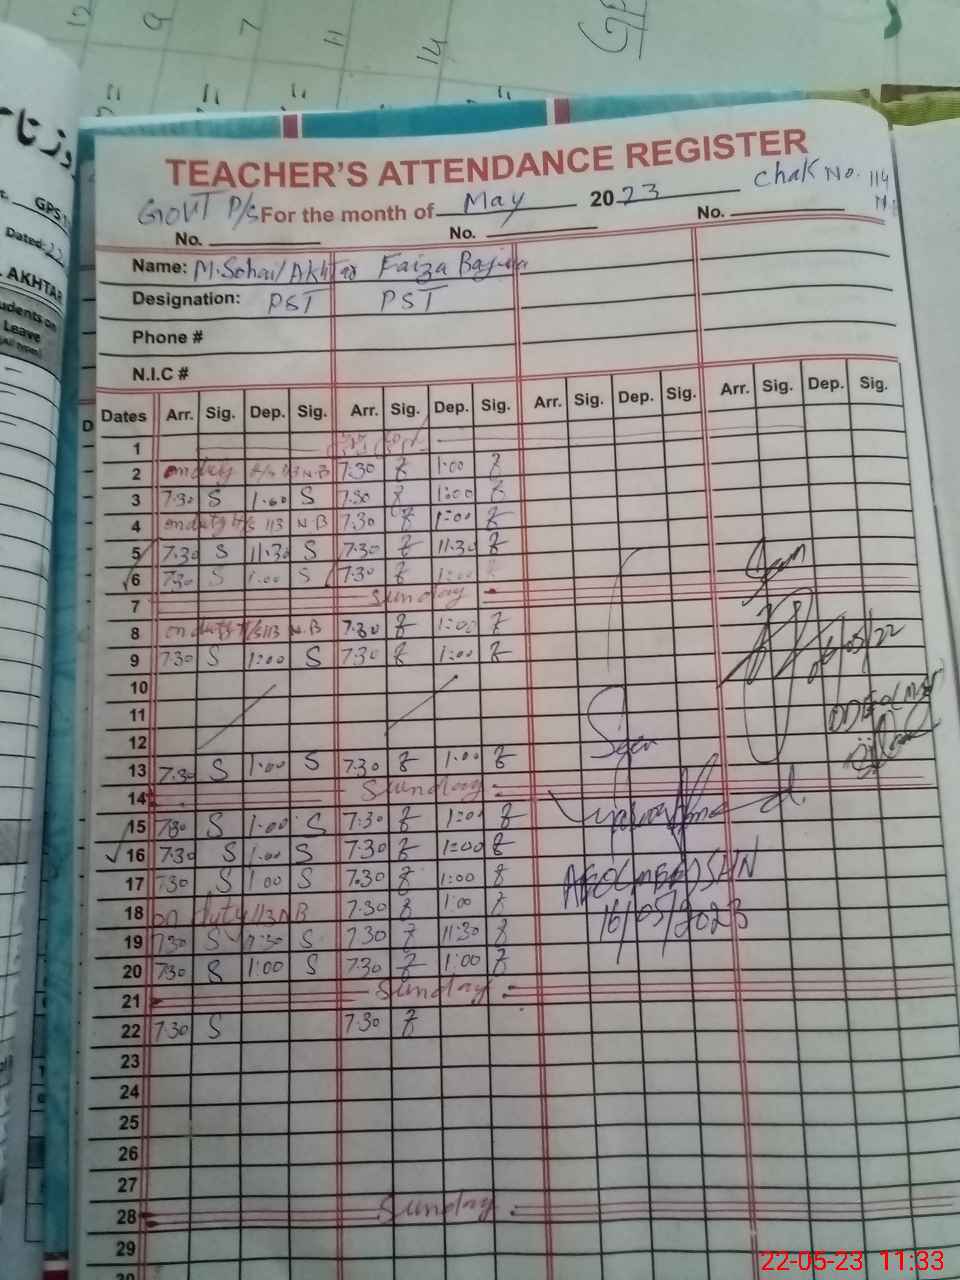 12 9 7 11 14
GPS
Dated:
AKHTAR
Students on
Leave
TEACHER'S ATTENDANCE REGISTER
Govt P/S For the month of May 2023 Chak No. 114
No. No. No.
Name: M.Sohail Akhtar Faiza Bajwa
Designation: PST PST
Phone #
N.I.C #
Dates Arr. Sig. Dep. Sig. Arr. Sig. Dep. Sig. Arr. Sig. Dep. Sig. Arr. Sig. Dep. Sig.
1
2 on duty P/S 113 N.B 7:30 F 1:00 F
3 7:30 S 1:00 S 7:30 F 1:00 F
4 on duty P/S 113 N B 7:30 F 1:00 F
5 7:30 S 11:30 S 7:30 F 11:30 F
6 7:30 S 1:00 S 7:30 F 1:00 F
7 Sunday
8 on duty P/S 113 N.B 7:30 F 1:00 F
9 7:30 S 1:00 S 7:30 F 1:00 F
10
11
12
13 7:30 S 1:00 S 7:30 F 1:00 F
14 Sunday
15 7:30 S 1:00 S 7:30 F 1:00 F
16 7:30 S 1:00 S 7:30 F 1:00 F
17 7:30 S 1:00 S 7:30 F 1:00 F
18 on duty 113 NB 7:30 F 1:00 F
19 7:30 S S 7:30 F 11:30 F
20 7:30 S 1:00 S 7:30 F 1:00 F
21 Sunday
22 7:30 S 7:30 F
23
24
25
26
27
28 Sunday
29
30
Seen
06/05/22
Seen
16/05/2023
22-05-23 11:33